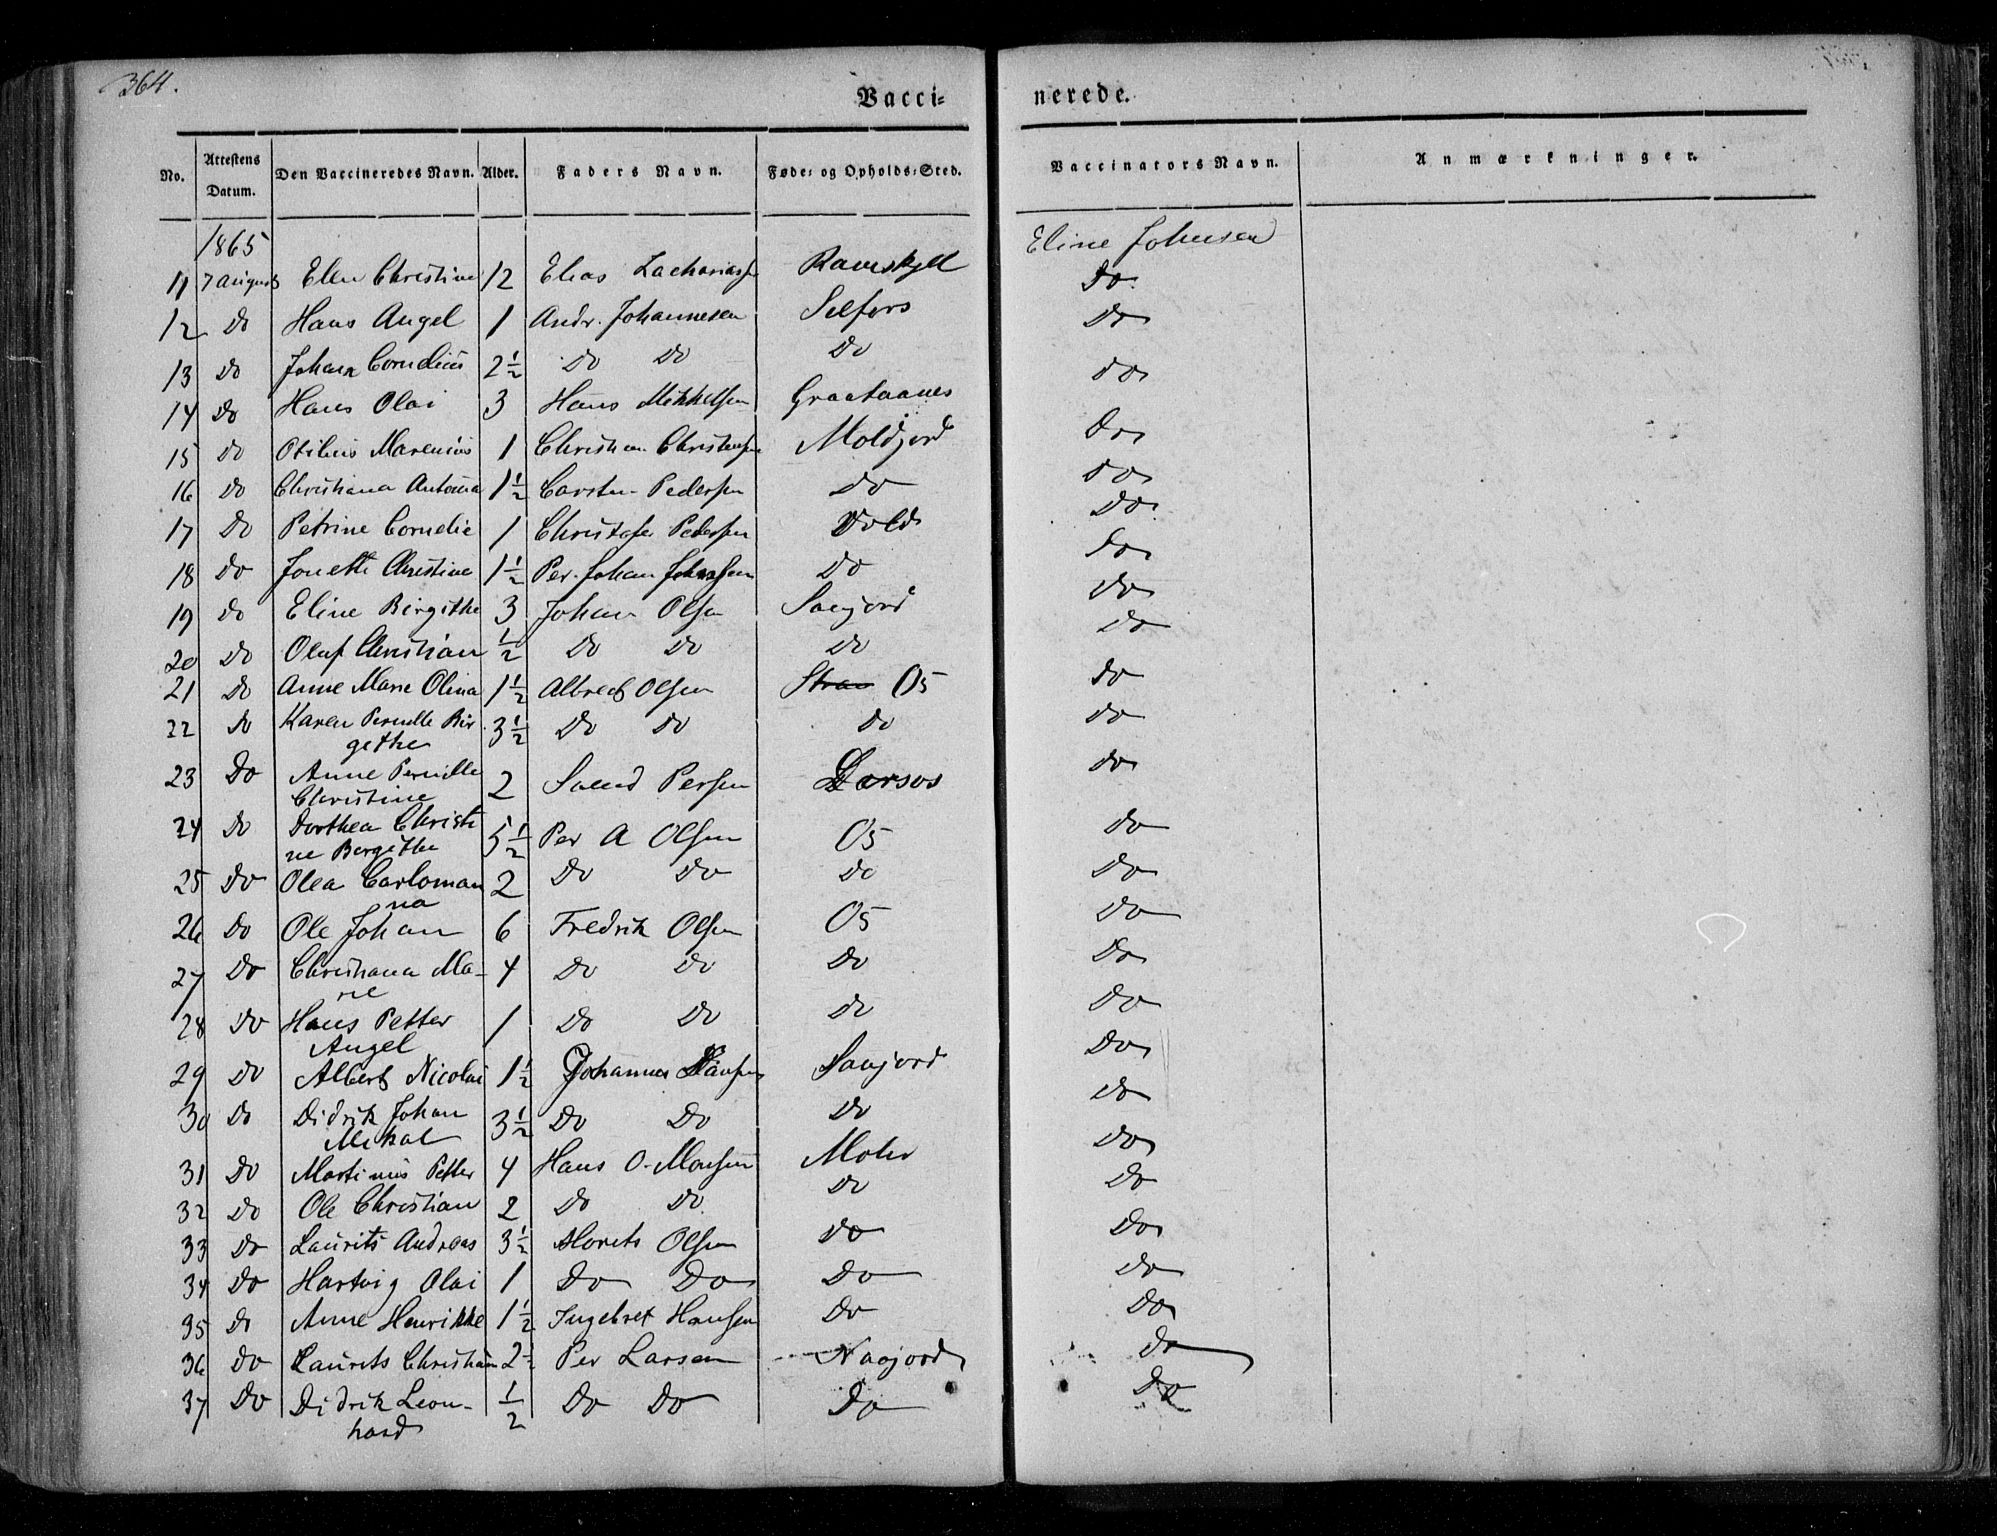 364.
Vacci-
nerede.
No. Attestens Datum. Den Vaccineredes Navn. Alder. Faders Navn. Føde- og Opholds-Sted. Vaccinators Navn. Anmærkninger.
1865 Eline Johnsen
11 7 August Ellen Christine 12 Elias Zachariass Ravnskjell Do
12 Do Hans Angel 1 Andr. Johannesen Selfors Do
13 Do Johan Cornelius 2½ Do Do Do Do
14 Do Hans Olai 3 Hans Mikkelsen Graataanes Do
15 Do Otilius Marenius 1 Christian Christensen Moldjord Do
16 Do Christiana Antonia 1½ Carsten Pedersen Do Do
17 Do Petrine Cornelie 1 Christofer Pedersen Vold Do
18 Do Jonette Christine 1½ Per. Johan Do Do
19 Do Eline Birgithe 3 Johan Olsen Soejord Do
20 Do Oluf Christian ½ Do Do Do Do
21 Do Anne Marie Olina 1½ Albrect Olsen Os Do
22 Do Karen Pernille Bir
gethe 3½ Do Do Do Do
23 Do Anne Pernille
Christine 2 Svend Persen Dorsos Do
24 Do Dorthea Christi
ne Bergithe 5½ Per A Olsen Os Do
25 Do Olea Carloman
na 2 Do Do Do Do
26 Do Ole Johan 6 Fredrik Olsen Os Do
27 Do Christiana Ma-
rie 4 Do Do Do Do
28 Do Hans Petter
Angel 1 Do Do Do Do
29 Do Albert Nicolai 1½ Johannes Hansen Soejord Do
30 Do Didrik Johan
Mikal 3½ Do Do Do Do
31 Do Martinus Petter 4 Hans O. Monsen Moho Do
32 Do Ole Christian 2 Do Do Do Do
33 Do Laurits Andreas 3½ Morets Olsen Do Do
34 Do Hartvig Olai 1 Do Do Do Do
35 Do Anne Henrikke 1½ Ingebret Hansen Do Do
36 Do Laurits Christian 2½ Per Larsen Naojord Do
37 Do Didrik Leon-
hard ½ Do Do Do Do